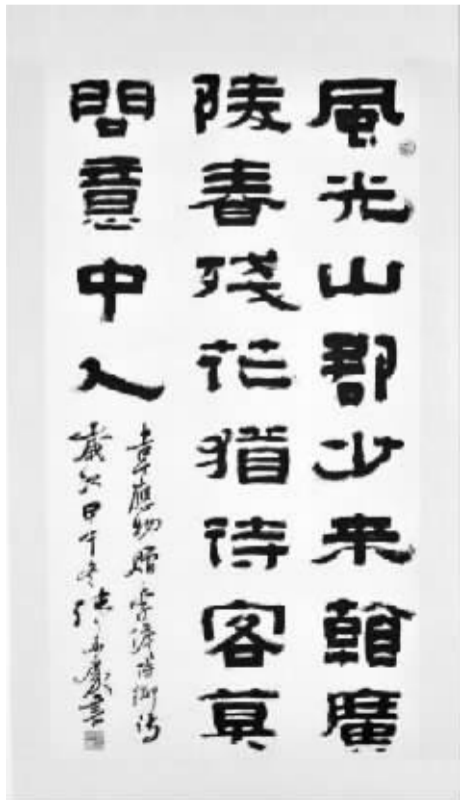 風光山郡少来看廣
陵春殘花猶待客莫
問意中人
韋應物贈李侍御詩
歲次甲午冬書